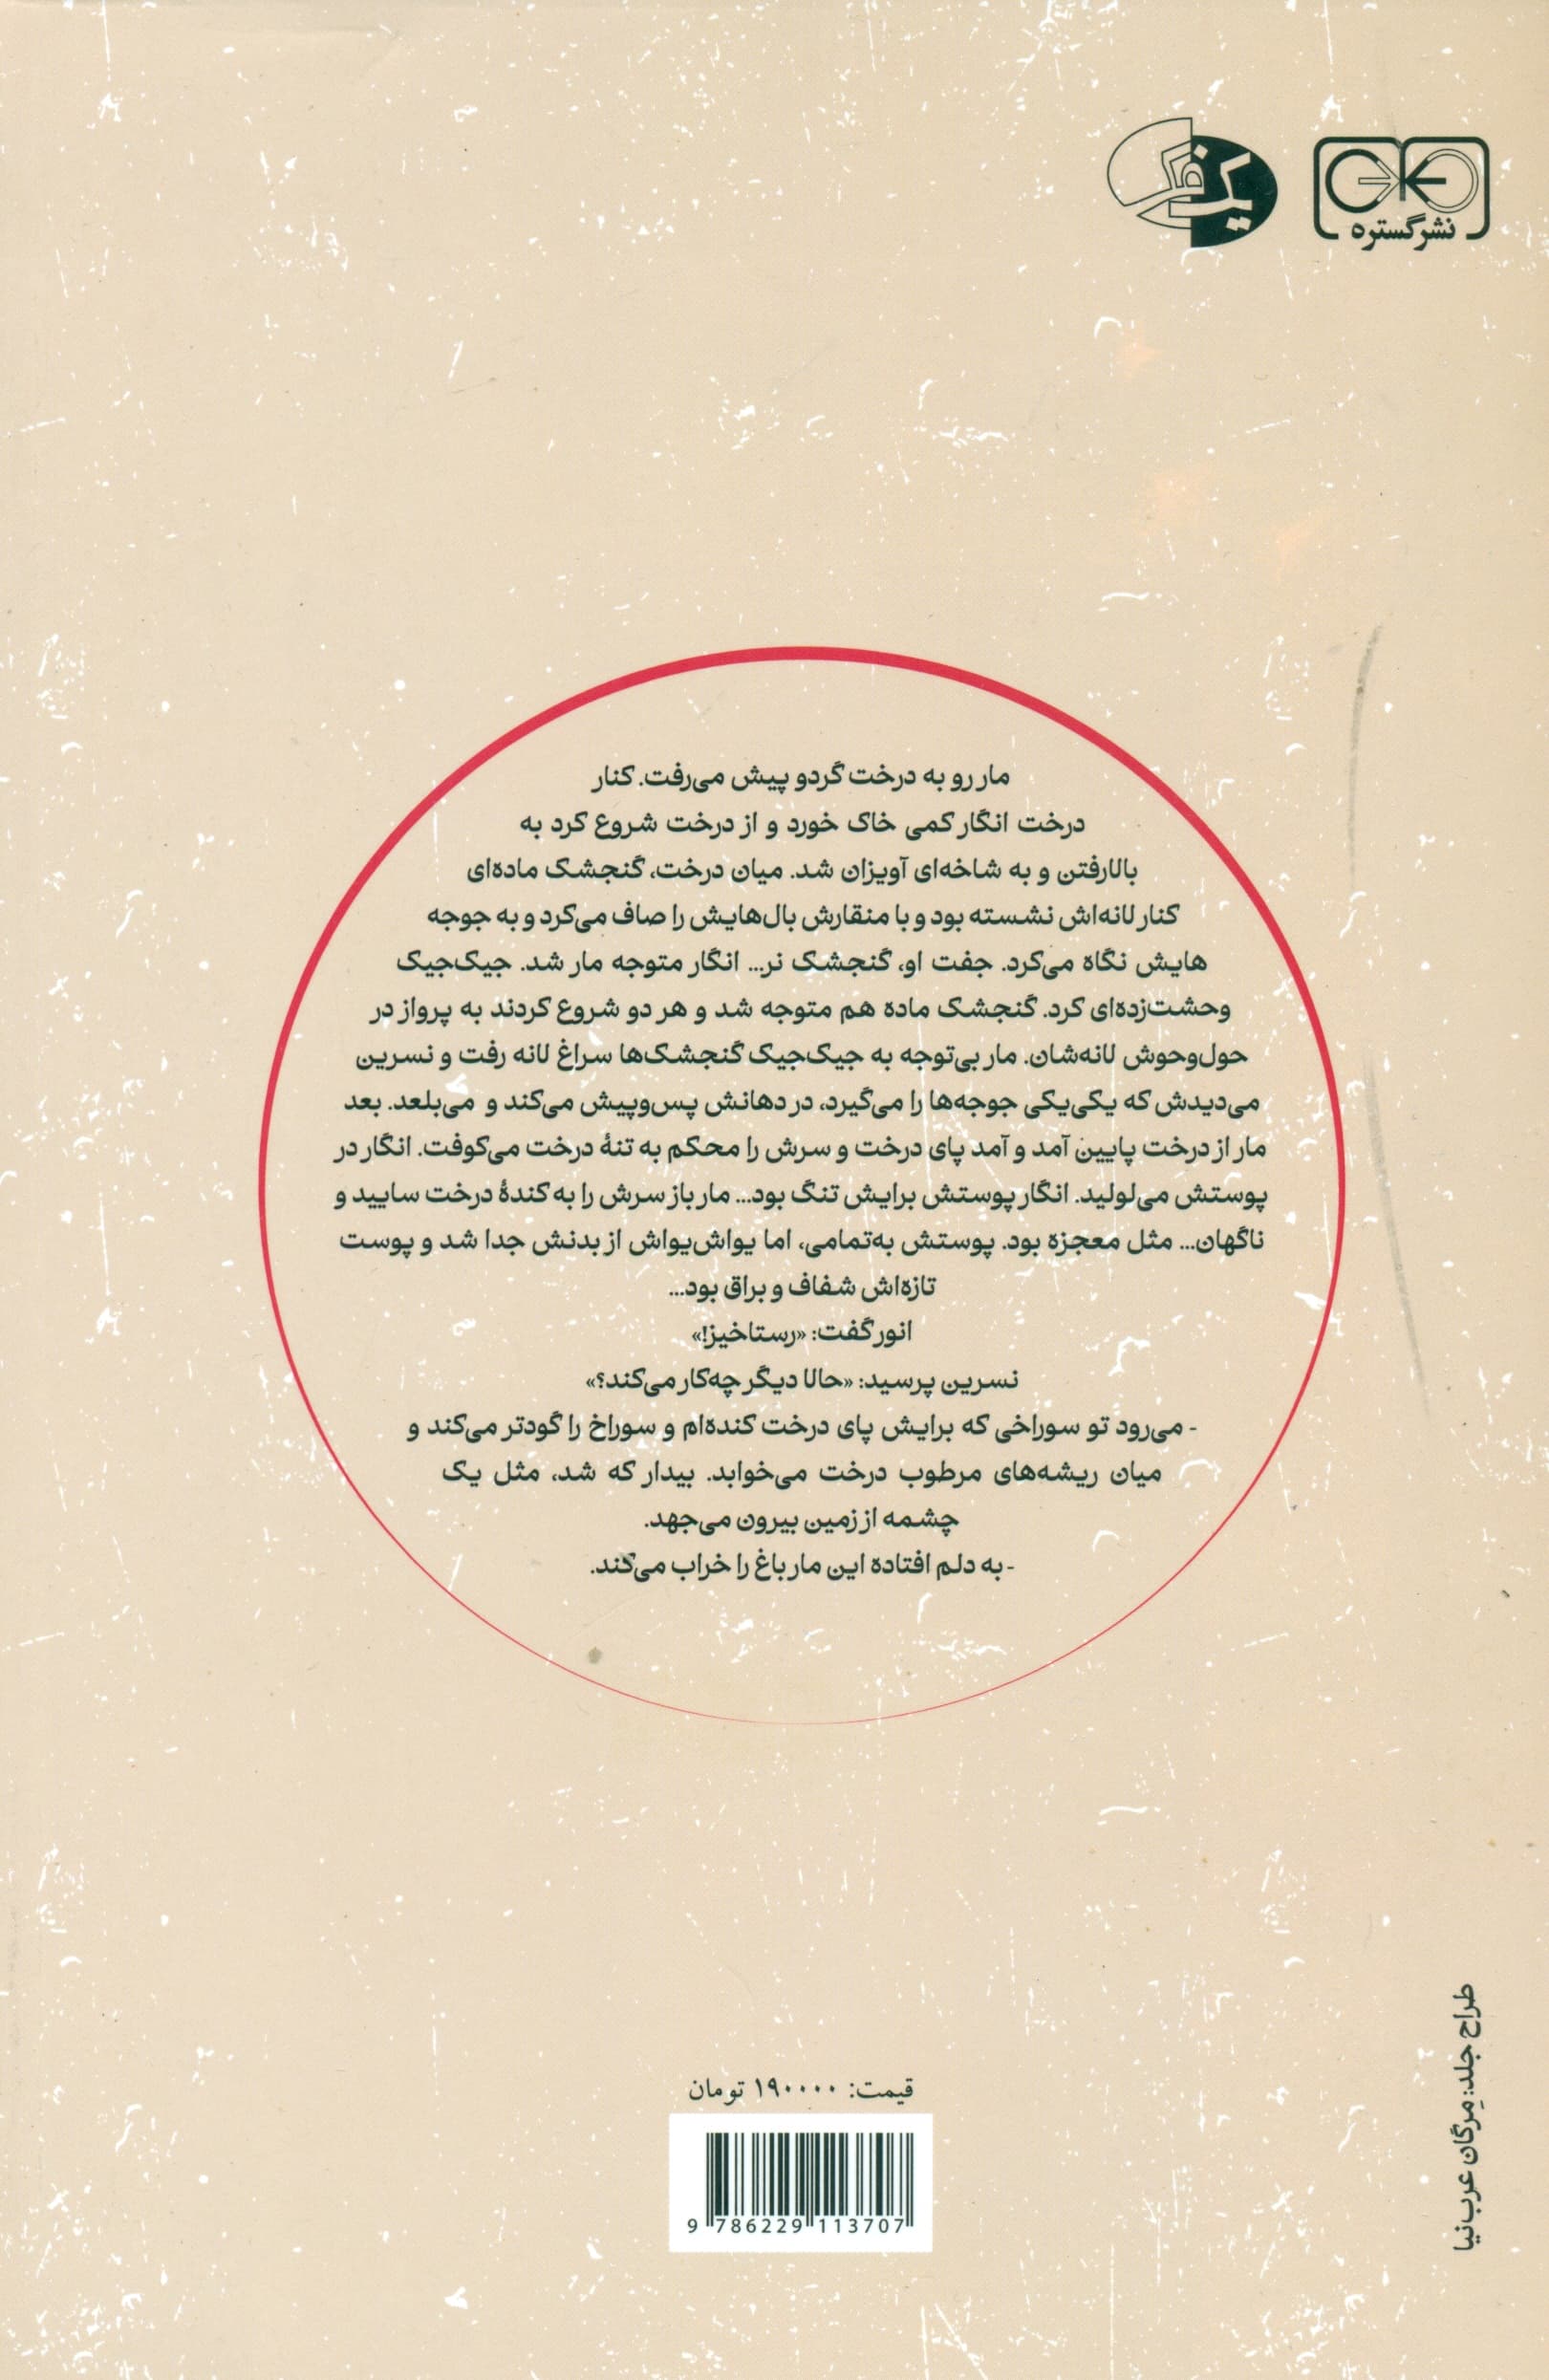 نشر گستره
مار رو به درخت گردو پیش می‌رفت. کنار
درخت انگار کمی خاک خورد و از درخت شروع کرد به
بالارفتن و به شاخه‌ای آویزان شد. میان درخت، گنجشک ماده‌ای
کنار لانه‌اش نشسته بود و با منقارش بال‌هایش را صاف می‌کرد و به جوجه
هایش نگاه می‌کرد. جفت او، گنجشک نر... انگار متوجه مار شد. جیک‌جیک
وحشت‌زده‌ای کرد. گنجشک ماده هم متوجه شد و هر دو شروع کردند به پرواز در
حول‌وحوش لانه‌شان. مار بی‌توجه به جیک‌جیک گنجشک‌ها سراغ لانه رفت و نسرین
می‌دیدش که یکی‌یکی جوجه‌ها را می‌گیرد، در دهانش پس‌وپیش می‌کند و می‌بلعد. بعد
مار از درخت پایین آمد و آمد پای درخت و سرش را محکم به تنهٔ درخت می‌کوفت. انگار در
پوستش می‌لولید. انگار پوستش برایش تنگ بود... مار باز سرش را به کندهٔ درخت سایید و
ناگهان... مثل معجزه بود. پوستش به‌تمامی، اما یواش‌یواش از بدنش جدا شد و پوست
تازه‌اش شفاف و براق بود...
انور گفت: «رستاخیز!»
نسرین پرسید: «حالا دیگر چه‌کار می‌کند؟»
- می‌رود تو سوراخی که برایش پای درخت کنده‌ام و سوراخ را گودتر می‌کند و
میان ریشه‌های مرطوب درخت می‌خوابد. بیدار که شد، مثل یک
چشمه از زمین بیرون می‌جهد.
- به دلم افتاده این مار باغ را خراب می‌کند.
طراح جلد: مِرگان عرب‌نیا
قیمت: ۱۹۰۰۰۰ تومان
9 786229 113707